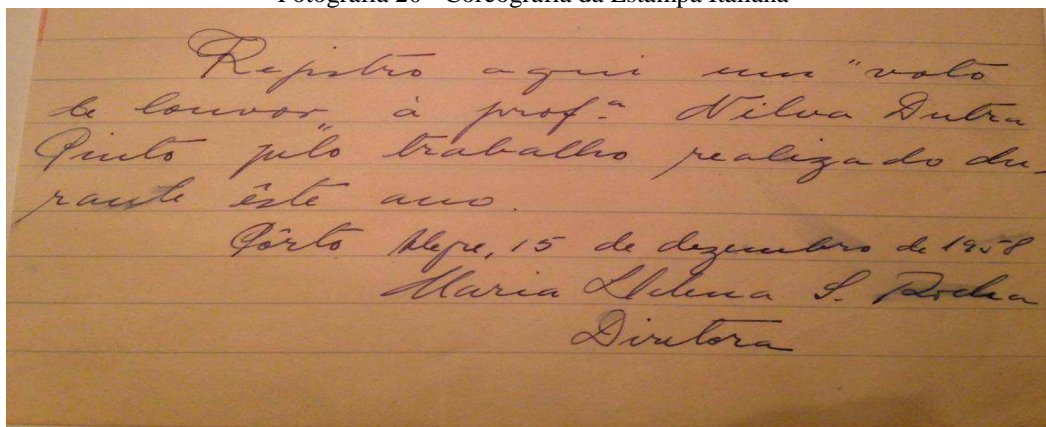 Fotografia 26 - Coreografia da Estampa Italiana
Registro aqui um "voto
de louvor" à profª. Nilva Dutra
Pinto pelo trabalho realizado du-
rante êste ano.
Pôrto Alegre, 15 de dezembro de 1958
Maria Helena S. Rocha
Diretora